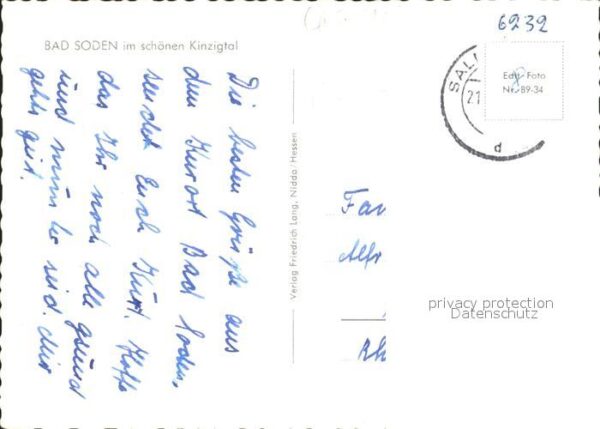 6232
BAD SODEN im schönen Kinzigtal
Die besten Grüße aus
dem Kurort Bad Soden,
sendet Euch Kurt. Hoffe
das Ihr noch alle gesund
und munter seid. Mir
gehts gut.
Verlag Friedrich Lang, Nidda/Hessen
SAL
21
d
Echt Foto
Nr. 89-34
Fam
Alfr
Rh
privacy protection
Datenschutz